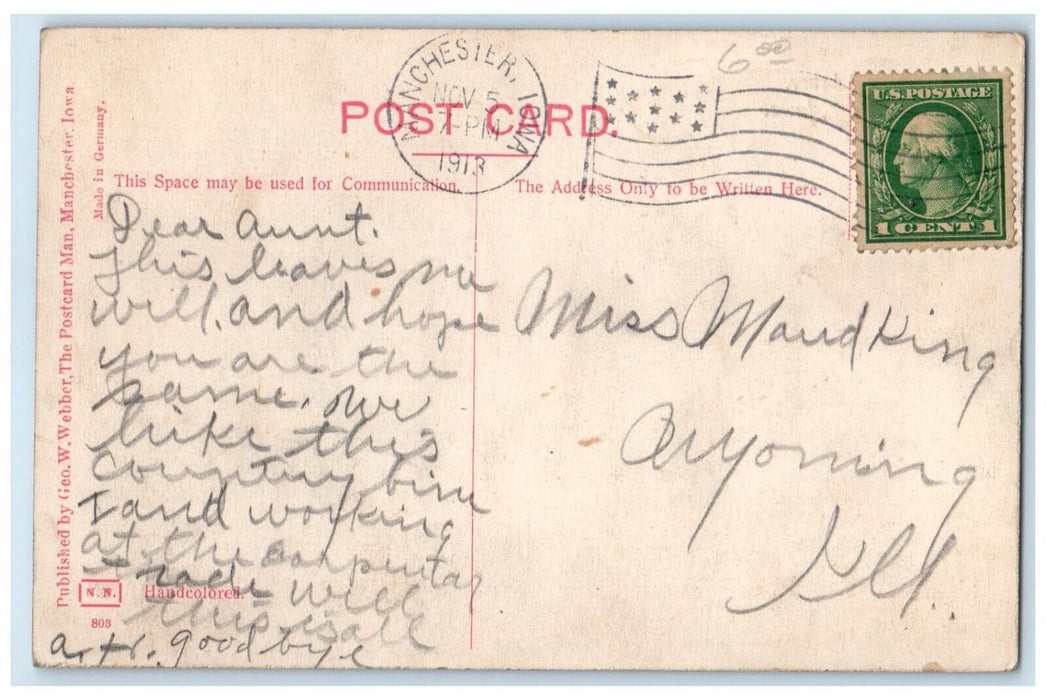 6.00
MANCHESTER, IOWA
NOV 5
7-PM
1913
U.S. POSTAGE
1 CENT 1
POST CARD.
This Space may be used for Communication.
The Address Only to be Written Here.
Published by Geo. W. Webber, The Postcard Man, Manchester, Iowa
Made in Germany.
Dear Aunt.
This leaves me
well, and hope
you are the
same. we
like this
country fine
I and working
at the carpentar
trade well
this is all
good bye
Miss Maud King
Wyoming
Ill.
N.N.
Handcolored.
803